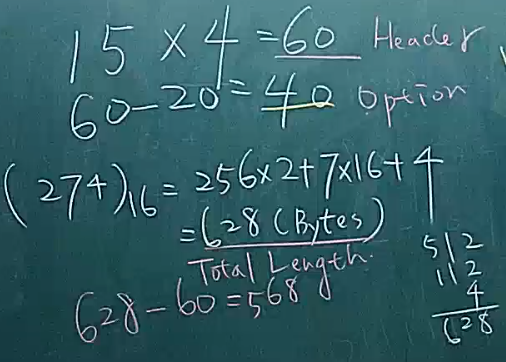 15 × 4 = 60 Header
60 - 20 = 40 Option
(274)16 = 256×2+7×16+4
= 628 (Bytes)
Total Length.
628 - 60 = 568
512
112
4
628